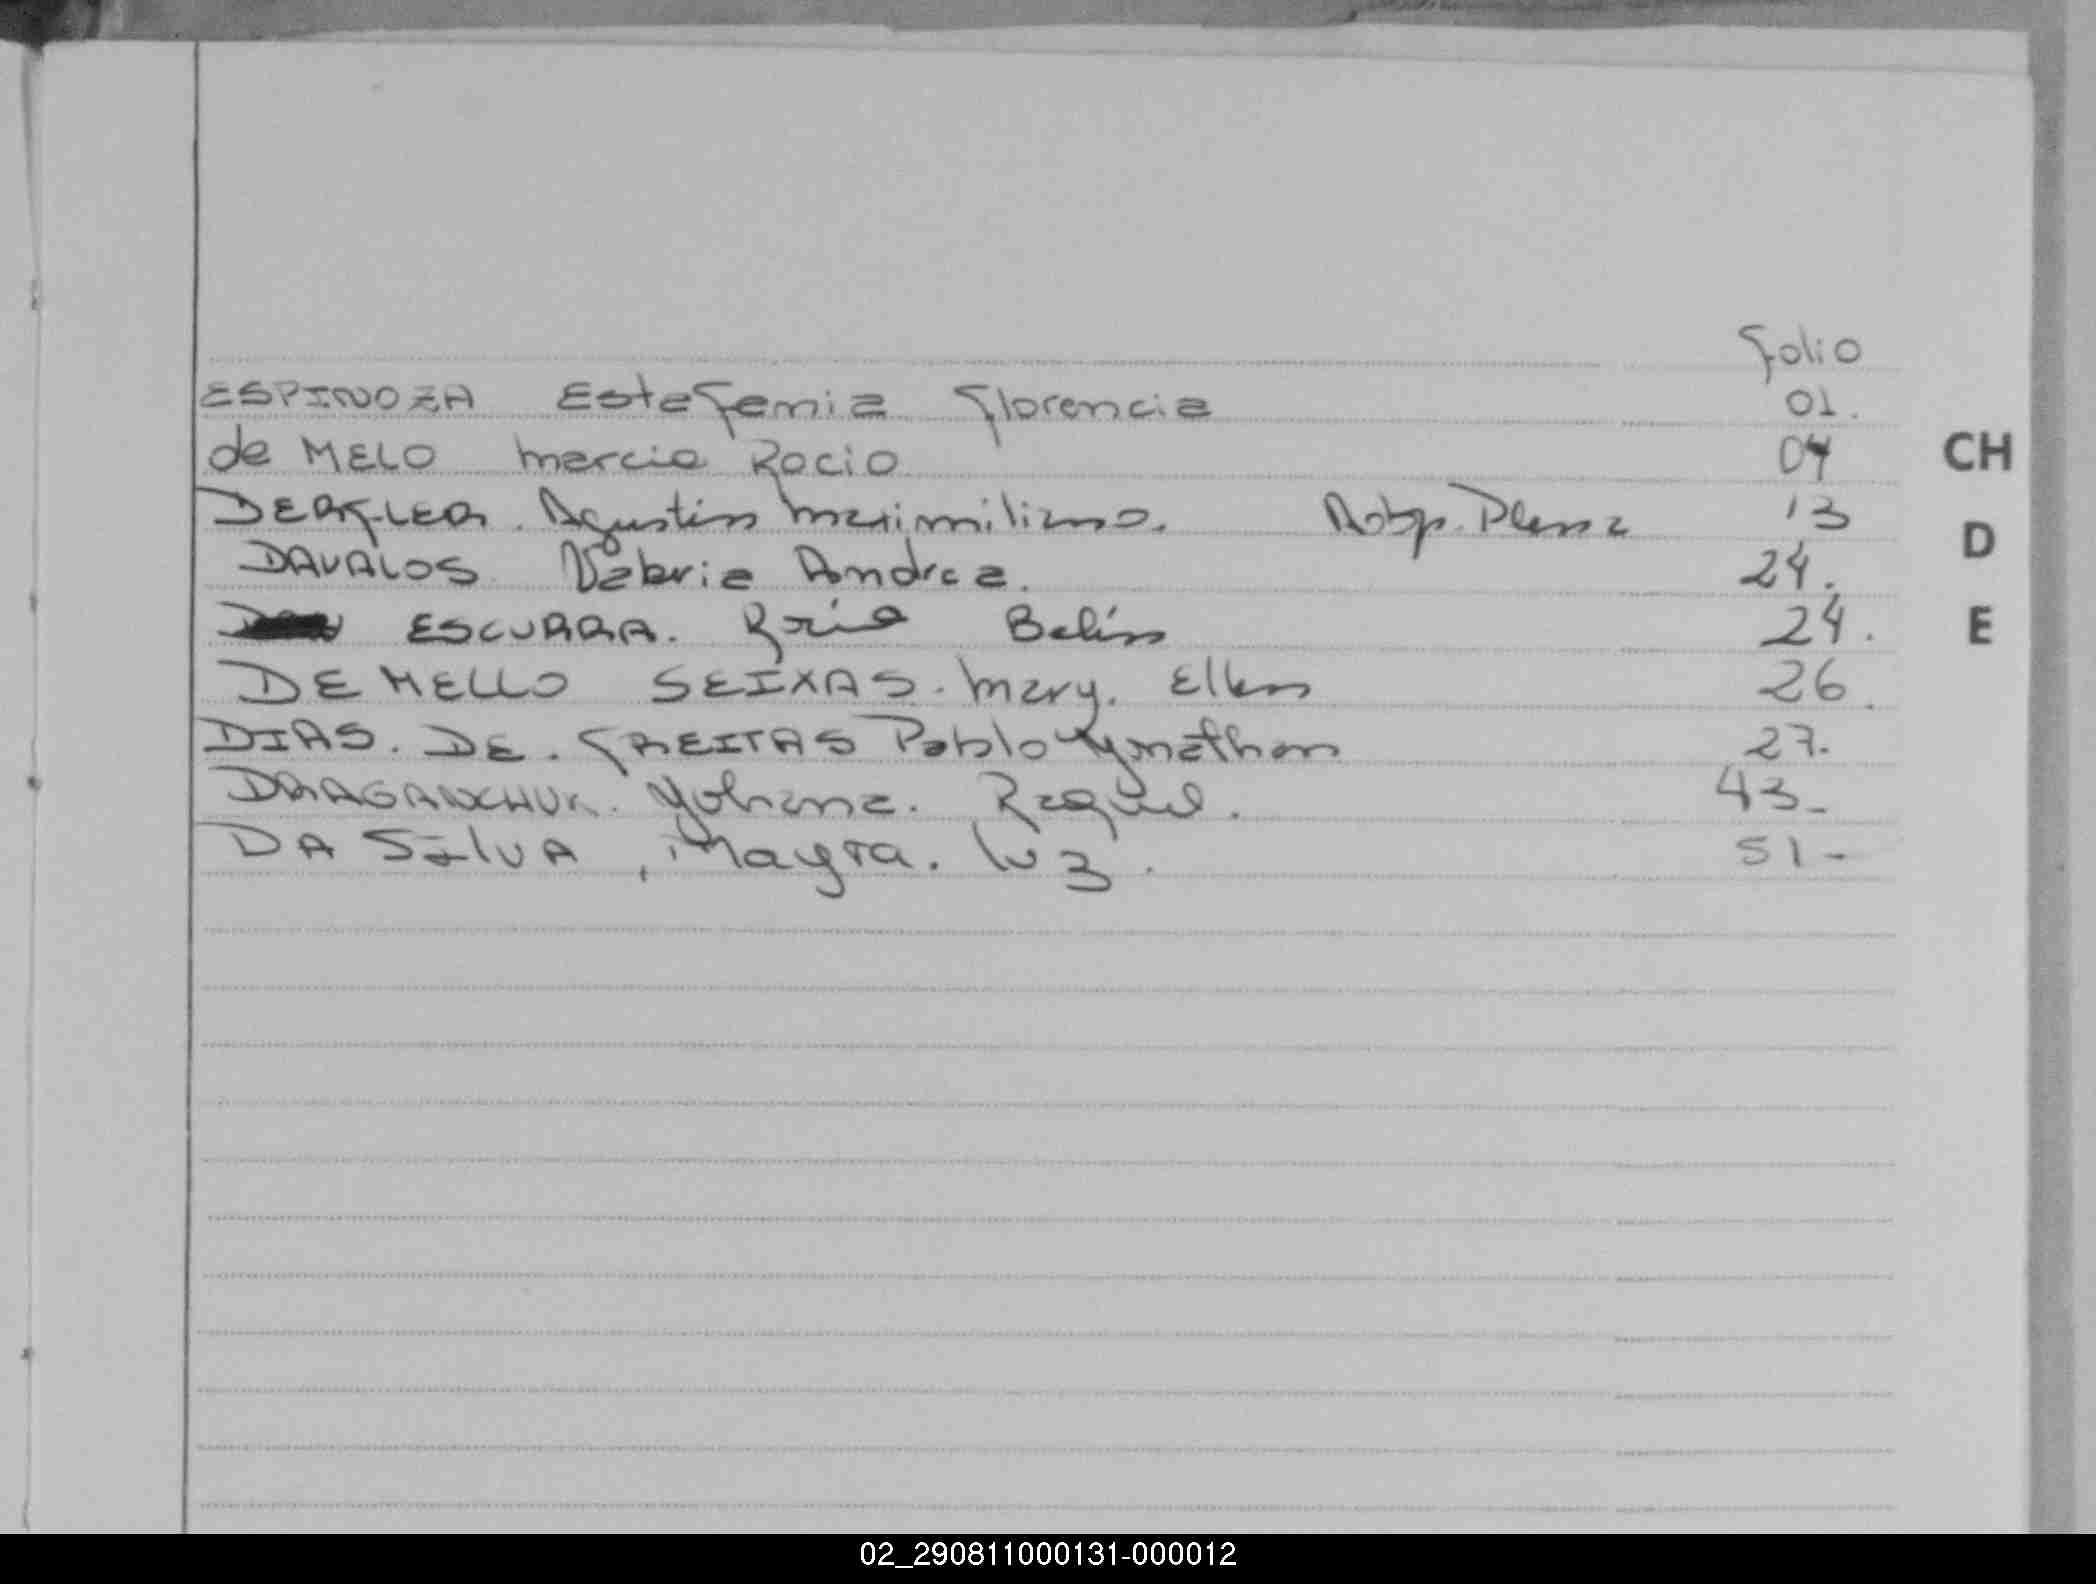 Folio
ESPINOZA Estefania Florencia 01.
de MELO Marcia Rocio 04
DERFLER. Agustin Maximiliano. Adop. Plena 13
DAVALOS Valeria Andrea. 24.
ESCURRA. Rocío Belén 24.
DE MELLO SEIXAS. Mary. Ellen 26.
DIAS. DE. FREITAS Pablo Yonathan 27.
Yohana. Raquel. 43-
DA SILVA, Mayra. luz. 51-
CH
D
E
02_290811000131-000012